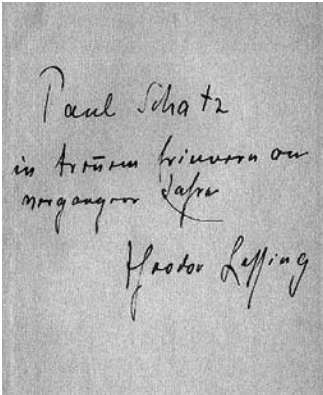 Paul Schatz
in treuem Erinnern an
vergangene Jahre
Theodor Lessing